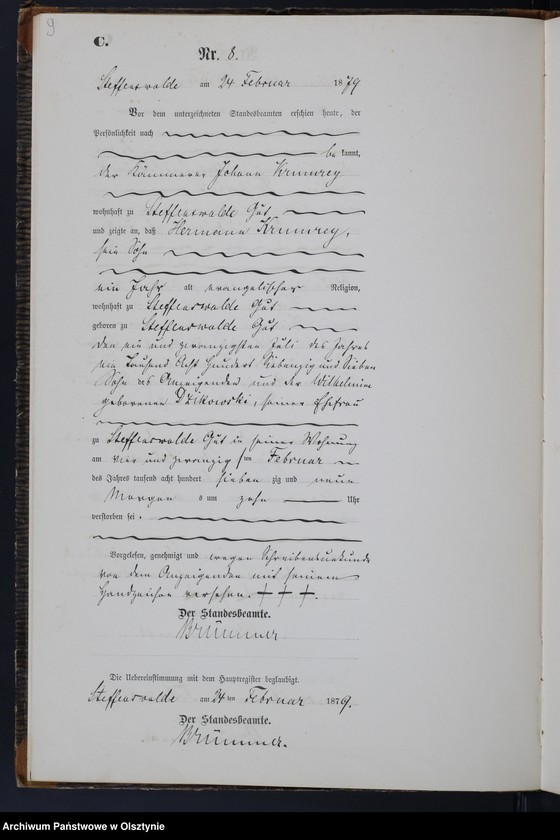 9
C.
Nr. 8.
Steffenswalde am 24 Februar 1879
Vor dem unterzeichneten Standesbeamten erschien heute, der
Persönlichkeit nach
bekannt,
der Kämmerer Johann Krumrey
wohnhaft zu Steffenswalde Gut
und zeigte an, daß Hermann Krumrey,
sein Sohn
ein Jahr alt evangelischer Religion,
wohnhaft zu Steffenswalde Gut
geboren zu Steffenswalde Gut
den ein und zwanzigsten Juli des Jahres
ein Tausend Acht Hundert Siebenzig und Sieben
Sohn des Anzeigenden und der Wilhelmine
geborenen Dzikowski, seiner Ehefrau
zu Steffenswalde Gut in seiner Wohnung
am vier und zwanzigsten Februar
des Jahres tausend acht hundert siebenzig und neun
Morgens um zehn Uhr
verstorben sei.
Vorgelesen, genehmigt und wegen Schreibensunkunde
von dem Anzeigenden mit seinem
Handzeichen versehen. + + +.
Der Standesbeamte.
Brümmer
Die Uebereinstimmung mit dem Hauptregister beglaubigt.
Steffenswalde am 24ten Februar 1879.
Der Standesbeamte.
Brümmer.
Archiwum Państwowe w Olsztynie